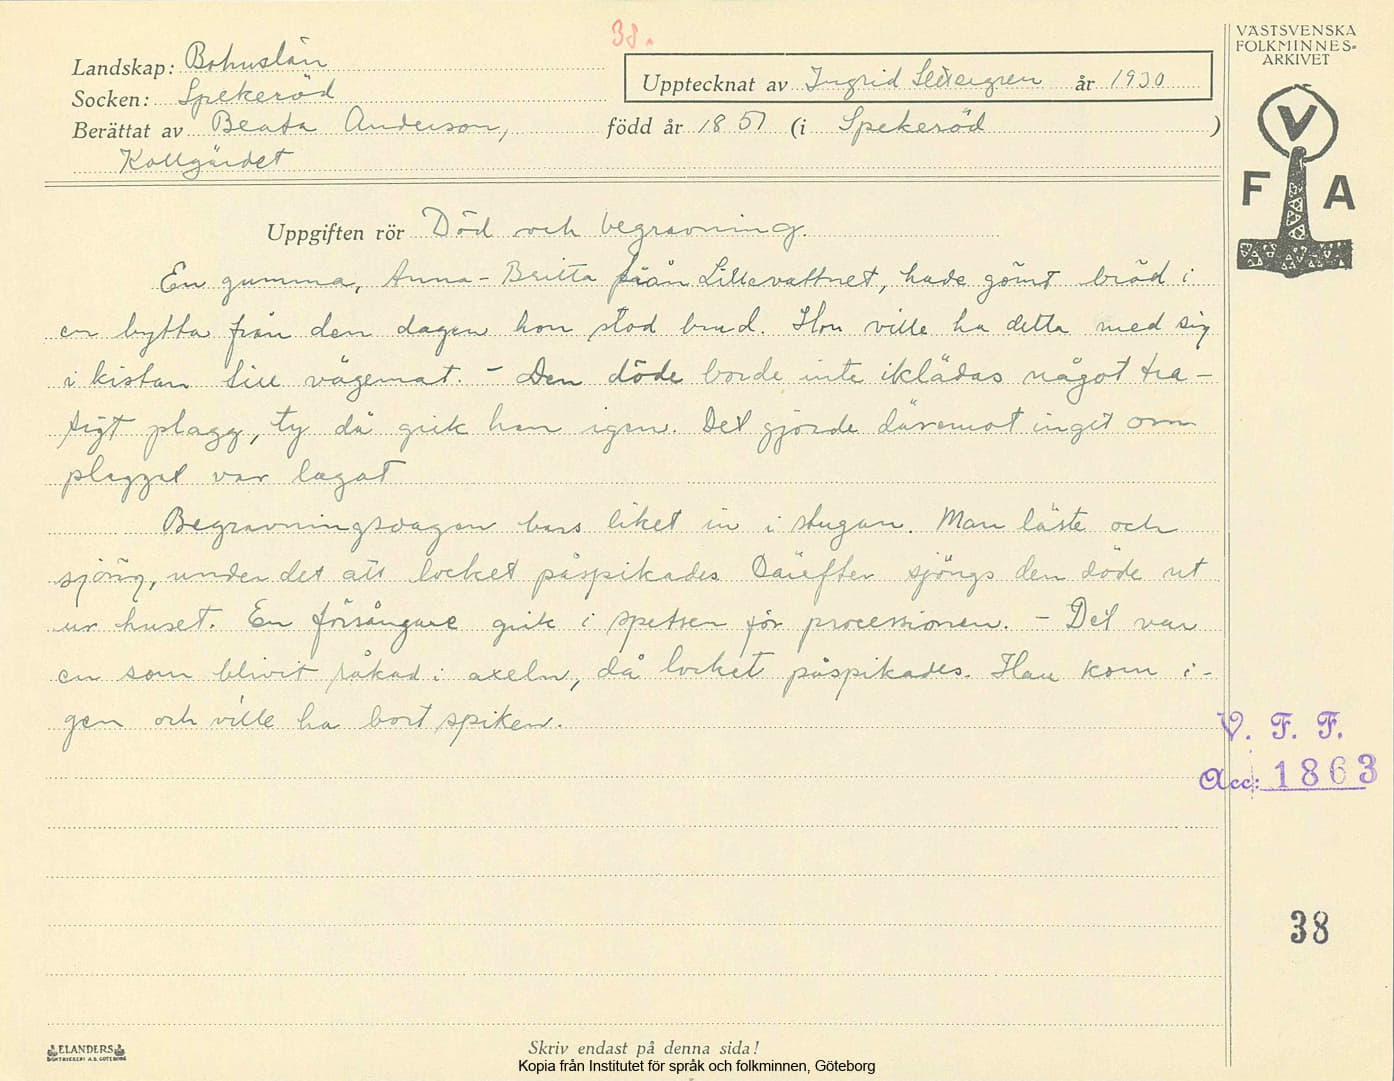 38.
VÄSTSVENSKA
FOLKMINNES-
ARKIVET
Landskap: Bohuslän
Upptecknat av Ingrid år 1930
Socken: Spekeröd
Berättat av Beata Anderson, född år 1857 (i Spekeröd )
Kollgärdet
V
F A
Uppgiften rör Död och begravning.
En gumma, Anna-Britta från Lillevattnet, hade gömt bröd i
en bytta från den dagen hon stod brud. Hon ville ha detta med sig
i kistan till vägemat. - Den döde borde inte iklädas något tra-
sigt plagg, ty då gick han igen. Det gjorde däremot inget om
plagget var lagat
Begravningsdagen bars liket in i stugan. Man läste och
sjöng, under det att locket påspikades Därefter sjöngs den döde ut
ur huset. En försångare gick i spetsen för processionen. - Det var
en som blivit råkad i axeln, då locket påspikades. Han kom i-
gen och ville ha bort spiken.
V. F. F.
Acc: 1863
38
ELANDERS
BOKTRYCKERI A.B. GÖTEBORG
Skriv endast på denna sida!
Kopia från Institutet för språk och folkminnen, Göteborg